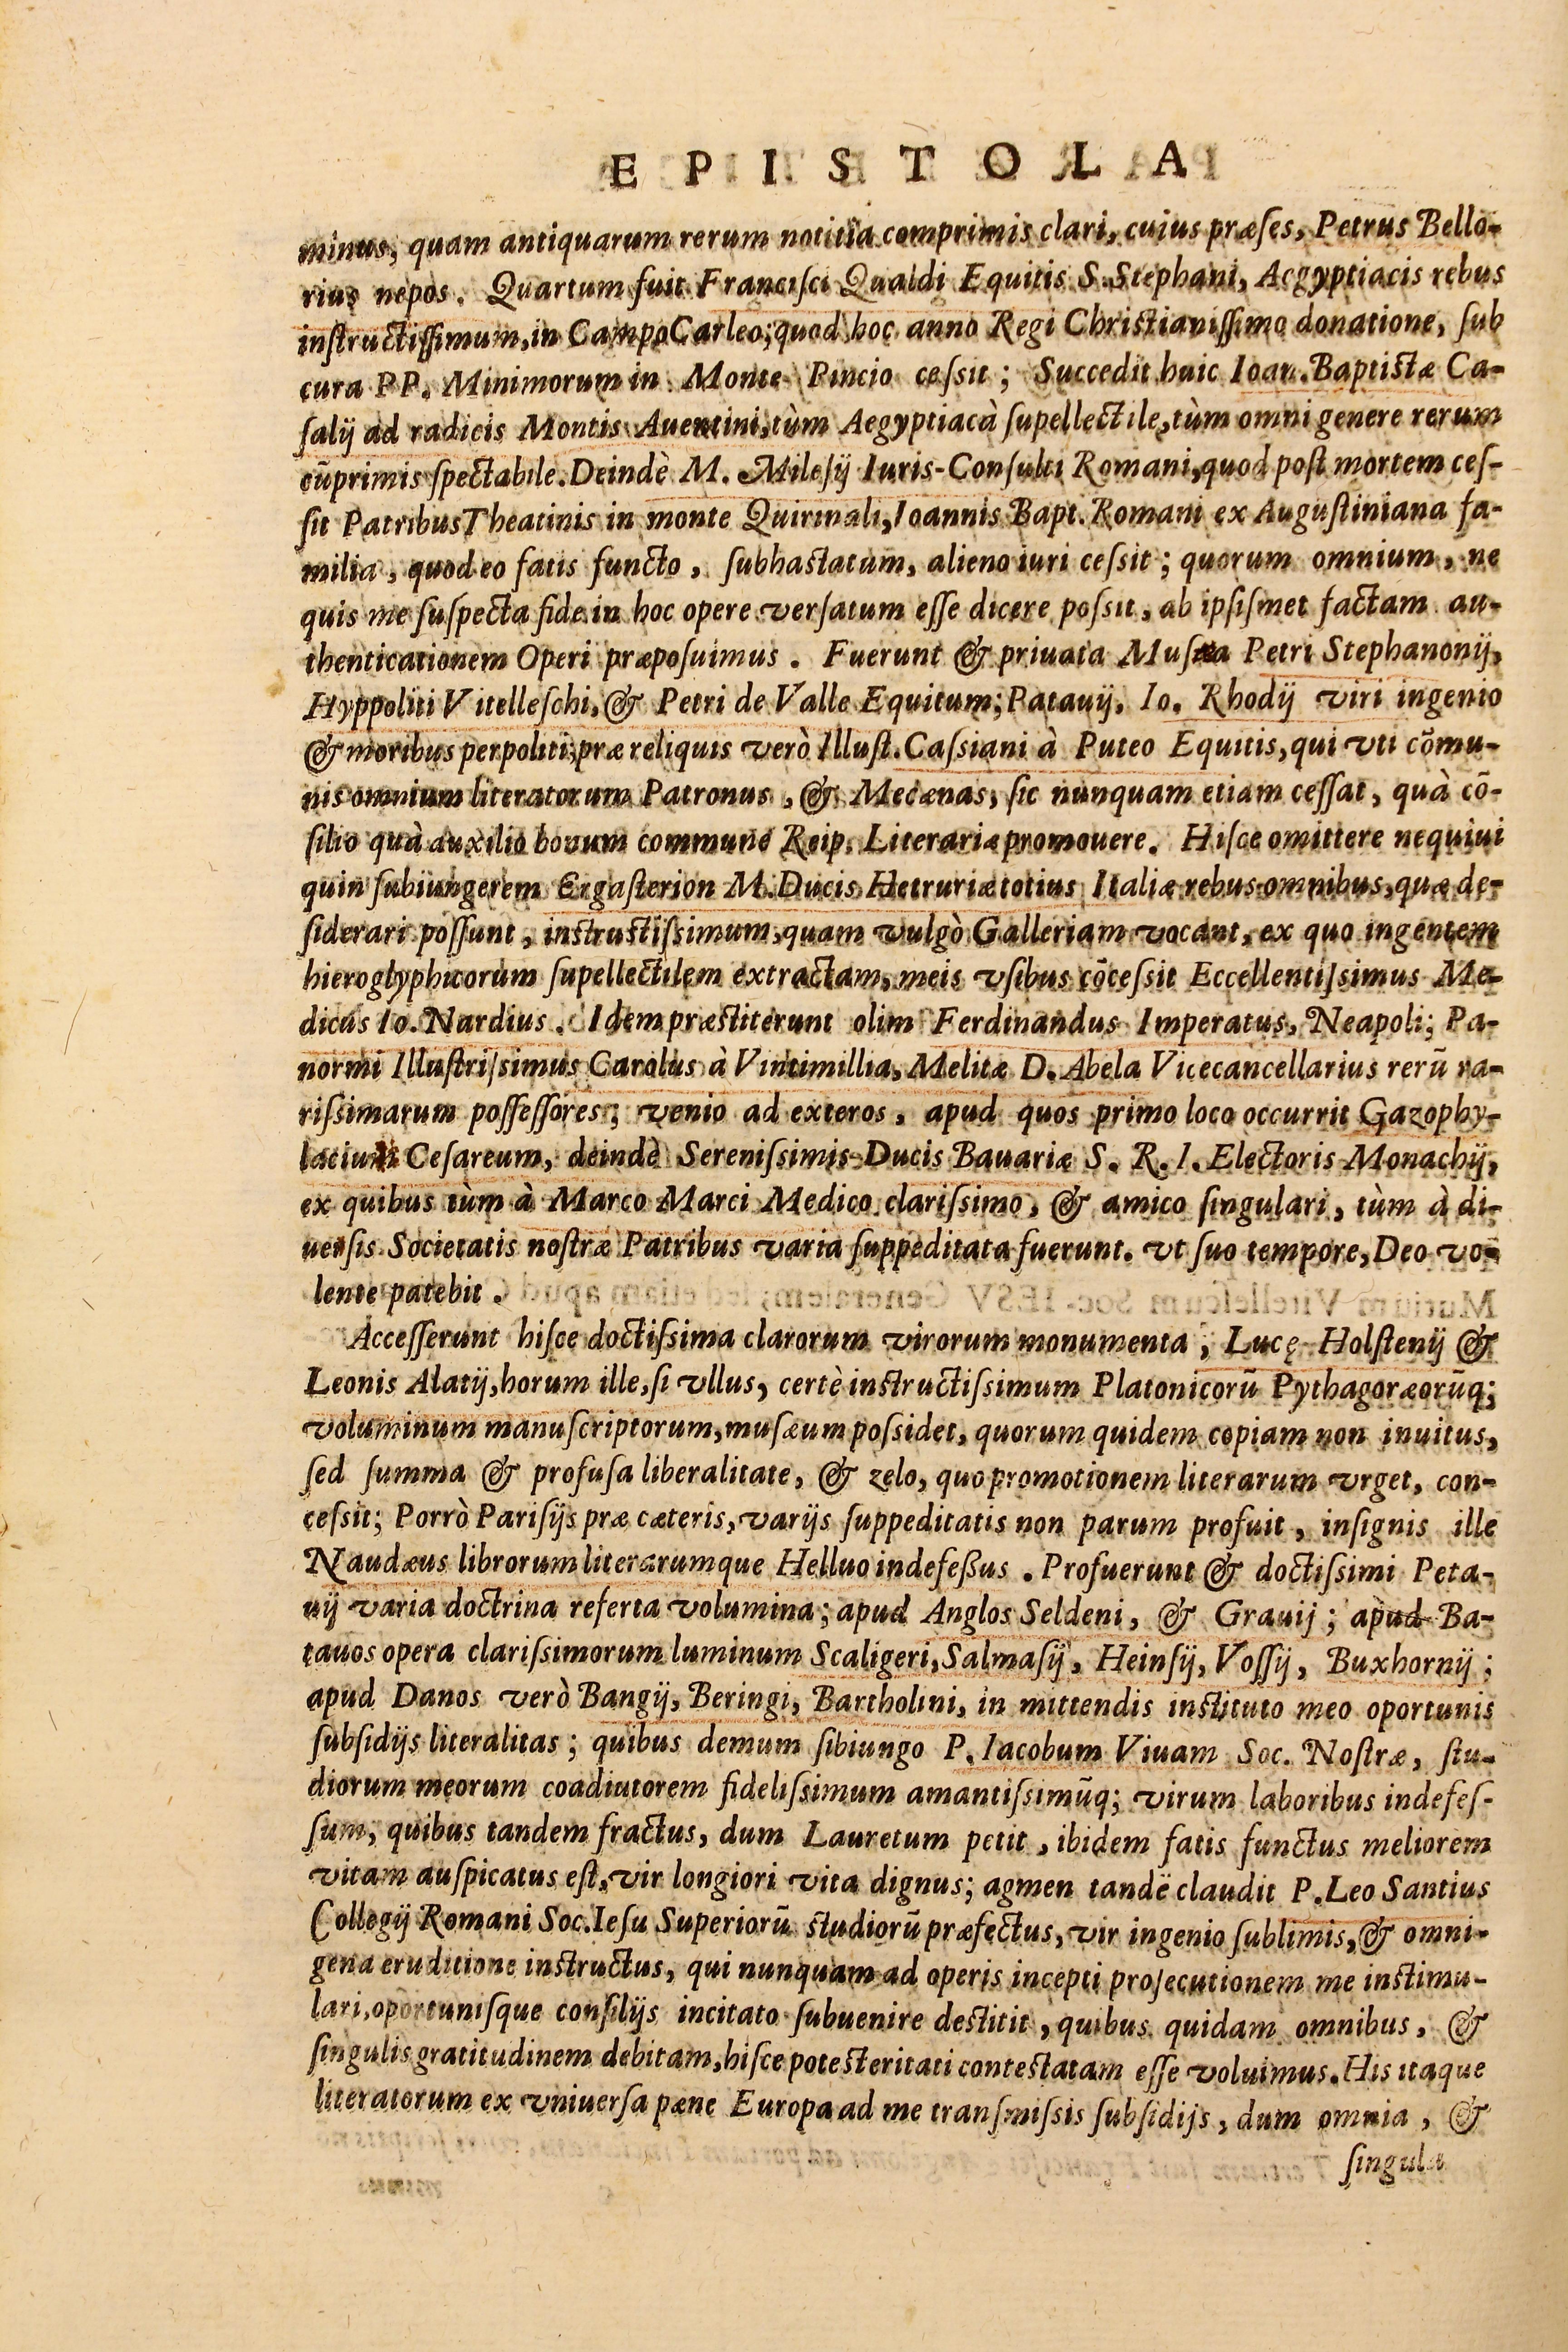 EPISTOLA
minus, quam antiquarum rerum notitia comprimis clari, cuius præſes, Petrus Bello-
rius nepos. Quartum fuit Franciſci Qualdi Equitis S. Stephani, Aegyptiacis rebus
inſtructiſſimum, in Campo Carleo; quod hoc anno Regi Chriſtianiſſimo donatione, ſub
cura PP. Minimorum in Monte Pincio ceſsit; Succedit huic Ioan. Baptiſtæ Ca-
ſalij ad radicis Montis Auentini, tùm Aegyptiacà ſupellectile, tùm omni genere rerum
cũprimis ſpectabile. Deindè M. Mileſij Iuris-Conſulti Romani, quod poſt mortem ceſ-
ſit Patribus Theatinis in monte Quirinali, Ioannis Bapt. Romani ex Auguſtiniana fa-
milia, quod eo fatis functo, ſubhaſtatum, alieno iuri ceſsit; quorum omnium, ne
quis me ſuſpecta fide in hoc opere verſatum eſſe dicere poſsit, ab ipſiſmet factam au-
thenticationem Operi præpoſuimus. Fuerunt & priuata Muſæa Petri Stephanonij,
Hyppoliti Vitelleſchi, & Petri de Valle Equitum; Patauij, Io. Rhodij viri ingenio
& moribus perpoliti; præ reliquis verò Illuſt. Caſsiani à Puteo Equitis, qui vti cõmu-
nis omnium literatorum Patronus, & Mecænas, ſic nunquam etiam ceſſat, quà cõ-
ſilio quà auxilio bonum commune Reip. Literariæ promouere. Hiſce omittere nequiui
quin ſubiungerem Ergaſterion M. Ducis Hetruriæ totius Italiæ rebus omnibus, quæ de-
ſiderari poſſunt, inſtructiſsimum, quam vulgò Galleriam vocant, ex quo ingentem
hieroglyphicorum ſupellectilem extractam, meis vſibus cõceſsit Eccellentiſsimus Me-
dicus Io. Nardius. Idem præſtiterunt olim Ferdinandus Imperatus, Neapoli; Pa-
normi Illuſtriſsimus Carolus à Vintimillia, Melitæ D. Abela Vicecancellarius rerũ ra-
riſsimarum poſſeſſores; venio ad exteros, apud quos primo loco occurrit Gazophy-
lacium Ceſareum, deindè Sereniſsimis Ducis Bauariæ S. R. I. Electoris Monachij,
ex quibus tùm à Marco Marci Medico clariſsimo, & amico ſingulari, tùm à di-
uerſis Societatis noſtræ Patribus varia ſuppeditata fuerunt. vt ſuo tempore, Deo vo-
lente patebit.
Acceſſerunt hiſce doctiſsima clarorum virorum monumenta, Lucę Holſtenij &
Leonis Alatij, horum ille, ſi vllus, certè inſtructiſsimum Platonicorũ Pythagoræorũq;
voluminum manuſcriptorum, muſæum poſsidet, quorum quidem copiam non inuitus,
ſed ſumma & profuſa liberalitate, & zelo, quo promotionem literarum vrget, con-
ceſsit; Porrò Pariſijs præ cæteris, varijs ſuppeditatis non parum profuit, inſignis ille
Naudæus librorum literarumque Helluo indefeßus. Profuerunt & doctiſsimi Peta-
uij varia doctrina referta volumina; apud Anglos Seldeni, & Grauij; apud Ba-
tauos opera clariſsimorum luminum Scaligeri, Salmaſij, Heinſij, Voſſij, Buxhornij;
apud Danos verò Bangij, Beringi, Bartholini, in mittendis inſtituto meo oportunis
ſubſidijs literalitas; quibus demum ſibiungo P. Iacobum Viuam Soc. Noſtræ, ſtu-
diorum meorum coadiutorem fideliſsimum amantiſsimũq; virum laboribus indefeſ-
ſum, quibus tandem fractus, dum Lauretum petit, ibidem fatis functus meliorem
vitam auſpicatus eſt, vir longiori vita dignus; agmen tandë claudit P. Leo Santius
Collegij Romani Soc. Ieſu Superiorũ ſtudiorũ præfectus, vir ingenio ſublimis, & omni-
gena eruditione inſtructus, qui nunquam ad operis incepti proſecutionem me inſtimu-
lari, oportuniſque conſilijs incitato ſubuenire deſtitit, quibus quidam omnibus, &
ſingulis gratitudinem debitam, hiſce poteſteritati conteſtatam eſſe voluimus. His itaque
literatorum ex vniuerſa pæne Europa ad me tranſmiſsis ſubſidijs, dum omnia, &
ſingula